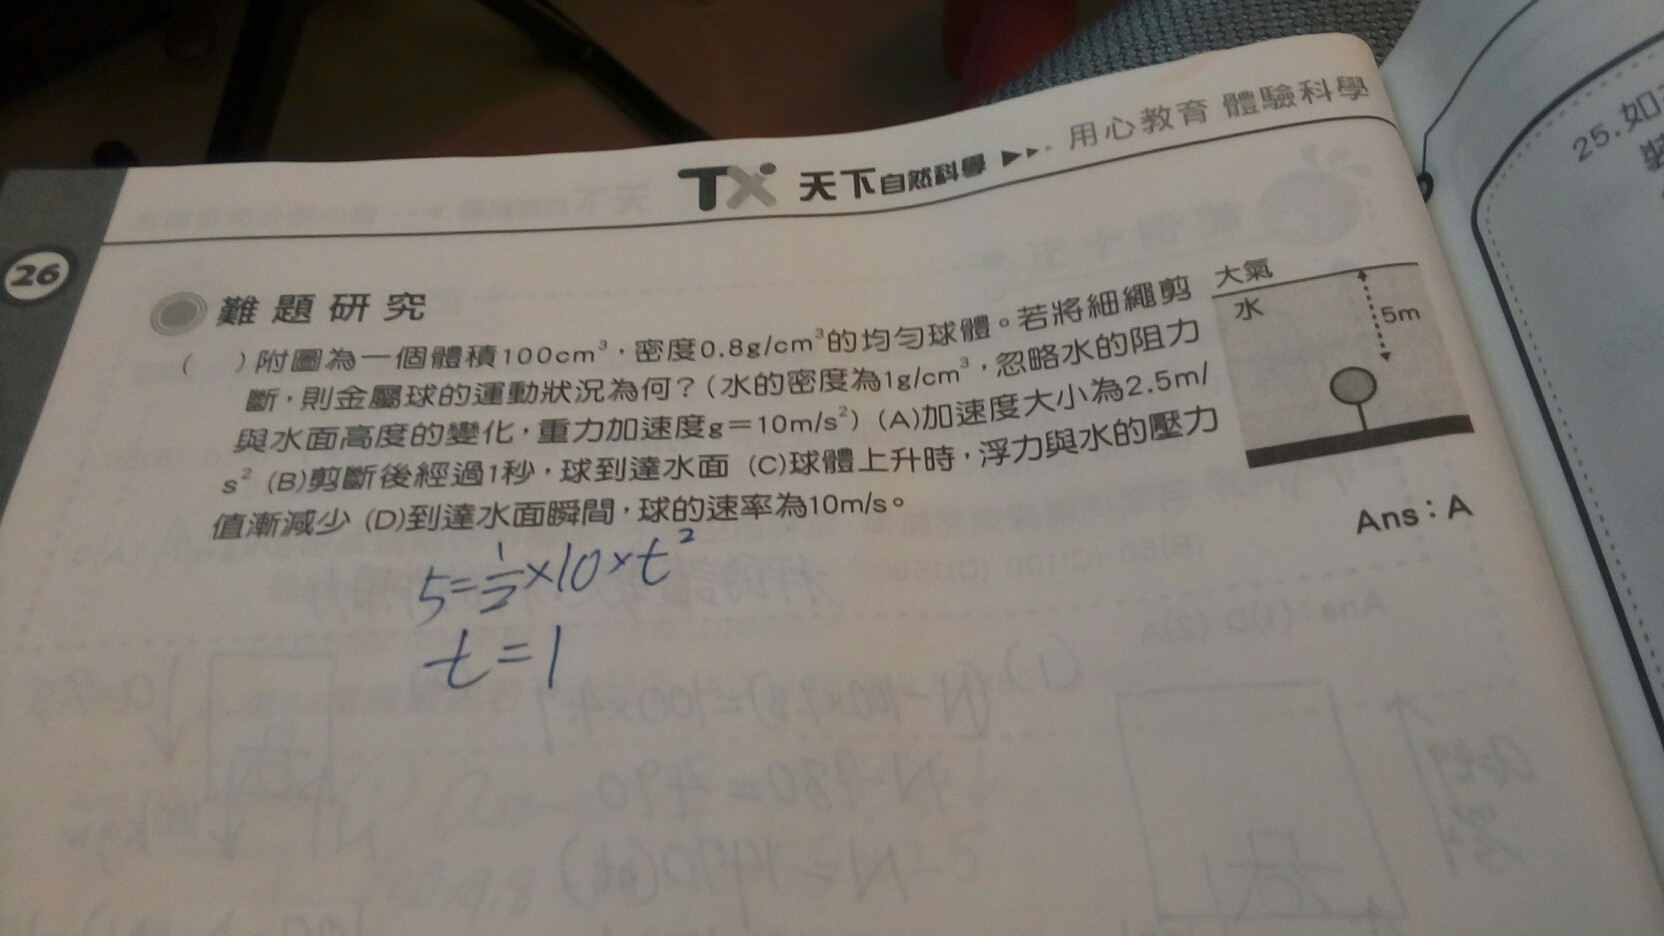 TX 天下自然科學 ▶▸▸ 用心教育 體驗科學
26
難題研究
(　)附圖為一個體積100cm³，密度0.8g/cm³的均勻球體。若將細繩剪
斷，則金屬球的運動狀況為何？(水的密度為1g/cm³，忽略水的阻力
與水面高度的變化，重力加速度g＝10m/s²) (A)加速度大小為2.5m/
s² (B)剪斷後經過1秒，球到達水面 (C)球體上升時，浮力與水的壓力
值漸減少 (D)到達水面瞬間，球的速率為10m/s。
大氣
水
5m
Ans：A
5=1/2×10×t²
t=1
25.如